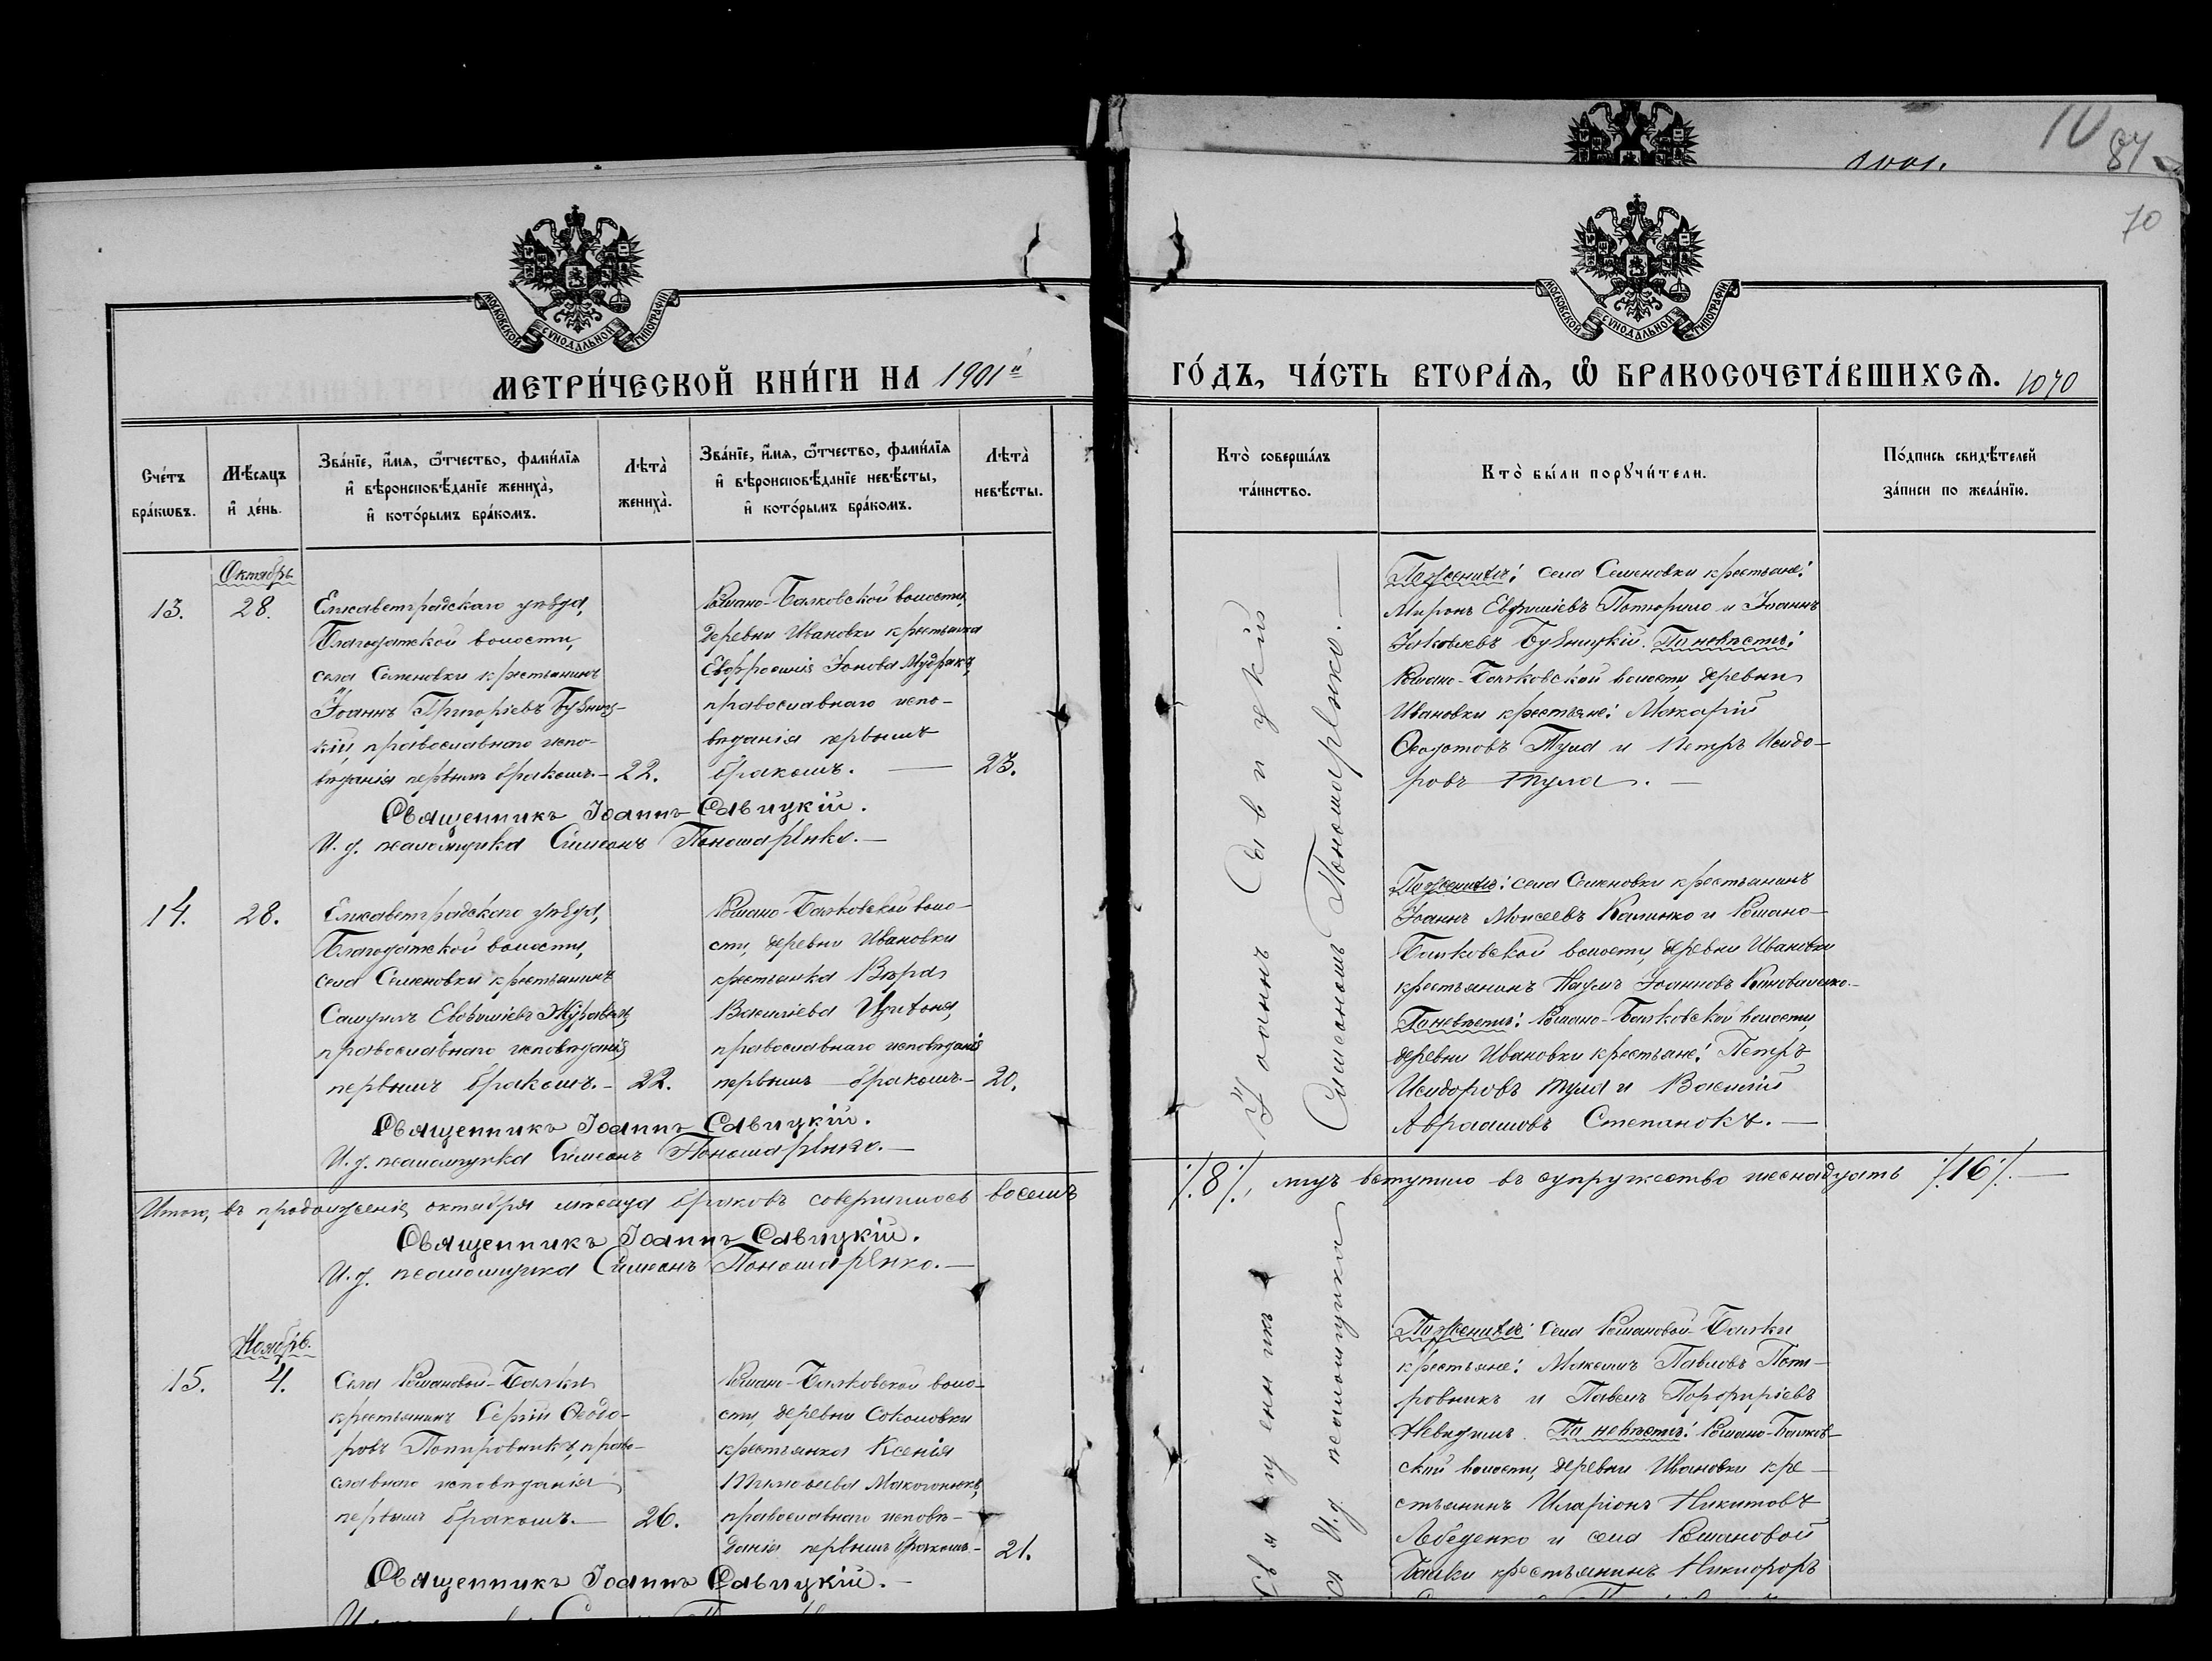 1901.
10
84
70
МОСКОВСКОЙ СѴНОДАЛЬНОЙ ТИПОГРАФІИ
МОСКОВСКОЙ СѴНОДАЛЬНОЙ ТИПОГРАФІИ
МЕТРИ́ЧЕСКОЙ КНИ́ГИ НА 1901й
ГО́ДЪ, ЧА́СТЬ ВТОРА́Ѧ, Ѽ БРАКОСОЧЕТА́ВШИХСѦ. 1070
Сче́тъ бра́кѡвъ.
Мѣ́сяцъ и҆ де́нь.
Зва́нїе, и҆́мѧ, ѻ҆́тчество, фами́лїѧ
и҆ вѣроисповѣ́данїе жениха̀,
и҆ кото́рымъ бра́комъ.
Лѣта̀ жениха̀.
Зва́нїе, и҆́мѧ, ѻ҆́тчество, фами́лїѧ
и҆ вѣроисповѣ́данїе невѣ́сты,
и҆ кото́рымъ бра́комъ.
Лѣта̀ невѣ́сты.
Кто̀ соверша́лъ та́инство.
Кто̀ бы́ли порꙋчи́тели.
По́дпись свидѣ́телей
за́писи по жела́нїю.
Октябрь.
13.
28.
Елисаветградскаго уѣзда,
Благодатской волости,
села Семеновки крестьянинъ
Іоаннъ Григоріевъ Бубниц-
кій, православнаго испо-
вѣданія первымъ бракомъ.-
22.
Романо-Балковской волости,
деревни Ивановки крестьянка
Евфросинія Іонова Мудракъ,
православнаго испо-
вѣданія первымъ
бракомъ.
23.
Священникъ Іоаннъ Савицкій.
И. д. псаломщика Симеонъ Пономаренко.-
По женихѣ: села Семеновки крестьяне:
Миронъ Евфиміевъ Потюрило и Іоаннъ
Іаковлевъ Бубницкій. По невѣстѣ:
Романо-Балковской волости деревни
Ивановки крестьяне: Макарій
Ѳеодотовъ Тула и Петръ Исидо-
ровъ Тула.-
14.
28.
Елисаветградскаго уѣзда,
Благодатской волости,
села Семеновки крестьянинъ
Самуилъ Евфиміевъ Журавель,
православнаго исповѣданія
первымъ бракомъ.-
22.
Романо-Балковской воло-
сти, деревни Ивановки
крестьянка Вѣра
Василіева
православнаго исповѣданія
первымъ бракомъ.-
20.
Священникъ Іоаннъ Савицкій.
И. д. псаломщика Симеонъ Пономаренко.-
По женихѣ: села Семеновки крестьянинъ
Іоаннъ Моисеевъ Калинко и Романо-
Балковской волости, деревни Ивановки
крестьянинъ Наумъ Іоанновъ Коноваленко.-
По невѣстѣ: Романо-Балковской волости,
деревни Ивановки крестьяне: Петръ
Исидоровъ Тула и Василій
Авраамовъ Степанокъ.-
Итого, въ продолженіи октября мѣсяца браковъ совершилось восемь
8, лицъ вступило въ супружество шеснадцать 16.-
Священникъ Іоаннъ Савицкій.
И. д. псаломщика Симеонъ Пономаренко.-
Ноябрь.
15.
4.
Села Романовой-Балки
крестьянинъ Сергій Ѳеодо-
ровъ Потировникъ, право-
славнаго исповѣданія
первымъ бракомъ.-
26.
Романо-Балковской воло-
сти, деревни Соколовки
крестьянка Ксенія
Тимоѳеева Макогонюкъ,
православнаго исповѣ-
данія первымъ бракомъ.-
21.
Священникъ Іоаннъ Савицкій.-
По женихѣ: села Романовой-Балки
крестьяне: Максимъ Павловъ Поти-
ровникъ и Павелъ Порфиріевъ
По невѣстѣ: Романо-Балков-
ской волости, деревни Ивановки кре-
стьянинъ Иларіонъ Никитовъ
Лебеденко и села Романовой
Балки крестьянинъ Никифоръ
Священникъ Іоаннъ Савицкій
И. д. псаломщика Симеонъ Пономаренко.-